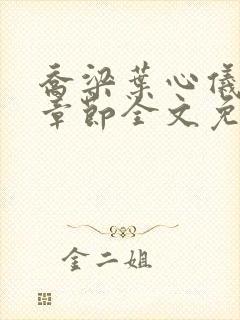 乔梁叶心仪
章节全文免
金二姐